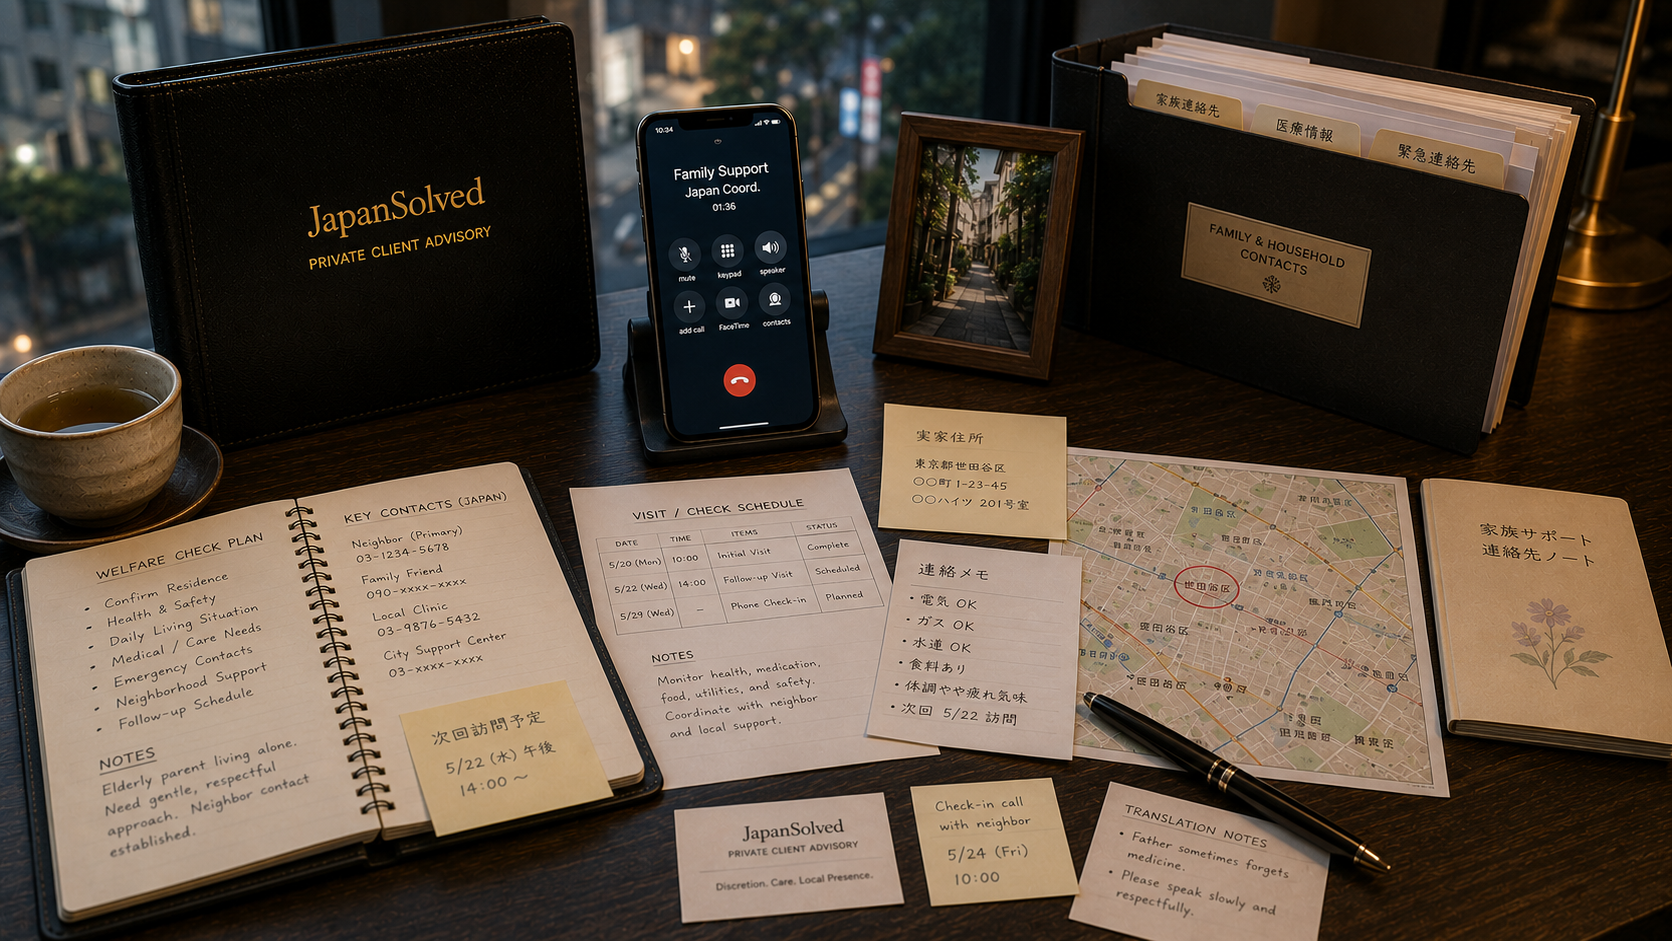 JapanSolved
PRIVATE CLIENT ADVISORY
10:34
Family Support
Japan Coord.
01:36
mute
keypad
speaker
add call
FaceTime
contacts
家族連絡先
医療情報
緊急連絡先
FAMILY & HOUSEHOLD
CONTACTS
WELFARE CHECK PLAN
• Confirm Residence
• Health & Safety
• Daily Living Situation
• Medical / Care Needs
• Emergency Contacts
• Neighborhood Support
• Follow-up Schedule
NOTES
Elderly parent living alone.
Need gentle, respectful
approach. Neighbor contact
established.
KEY CONTACTS (JAPAN)
Neighbor (Primary)
03-1234-5678
Family Friend
090-xxxx-xxxx
Local Clinic
03-9876-5432
City Support Center
03-xxxx-xxxx
次回訪問予定
5/22 (水) 午後
14:00 〜
VISIT / CHECK SCHEDULE
DATE TIME ITEMS STATUS
5/20 (Mon) 10:00 Initial Visit Complete
5/22 (Wed) 14:00 Follow-up Visit Scheduled
5/29 (Wed) – Phone Check-in Planned
NOTES
Monitor health, medication,
food, utilities, and safety.
Coordinate with neighbor
and local support.
実家住所
東京都世田谷区
○○町 1-23-45
○○ハイツ 201号室
連絡メモ
• 電気 OK
• ガス OK
• 水道 OK
• 食料あり
• 体調やや疲れ気味
• 次回 5/22 訪問
世田谷区
家族サポート
連絡先ノート
JapanSolved
PRIVATE CLIENT ADVISORY
Discretion. Care. Local Presence.
Check-in call
with neighbor
5/24 (Fri)
10:00
TRANSLATION NOTES
• Father sometimes forgets
medicine.
• Please speak slowly and
respectfully.